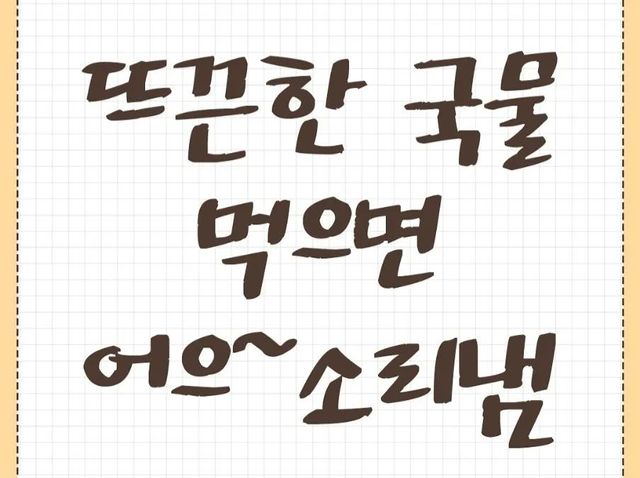 뜨끈한 국물
먹으면
어으~소리냄